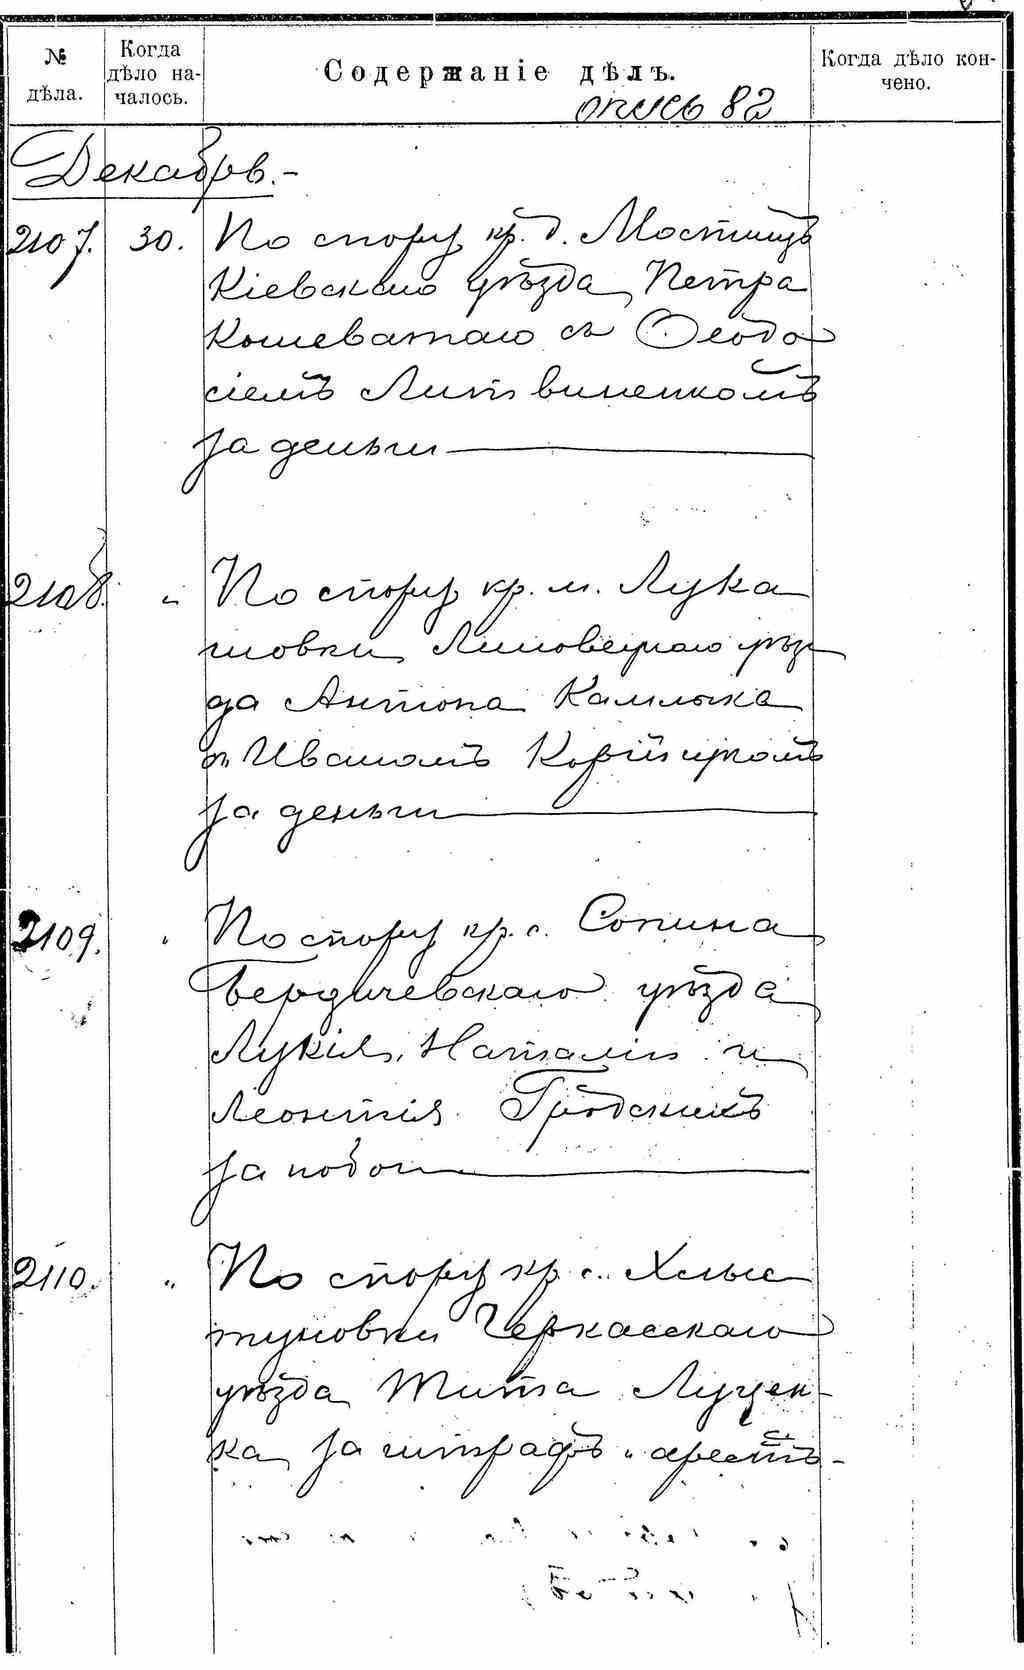 № дѣла.
Когда дѣло на-
чалось.
Содержаніе дѣлъ.
Когда дѣло кон-
чено.
опись 82
Декабрь.-
2107. 30. По спору кр. д. Мостищъ
Кіевскаго уѣзда Петра
Кошеватаго съ Ѳеодо
сіемъ Литвиненкомъ
за деньги
2108. " По спору кр. м. Лука
шовки Липовецкаго уѣз
да Антона Камлыка
съ Иваномъ
за деньги
2109. " По спору кр. с. Сопина
Бердичевскаго уѣзда
Лукія, Наталіи и
Леонтія Гродскихъ
за побои
2110. " По спору кр. с. Хлыс
туновки Черкасскаго
уѣзда Тита Луцен-
ка за штрафъ и арестъ-